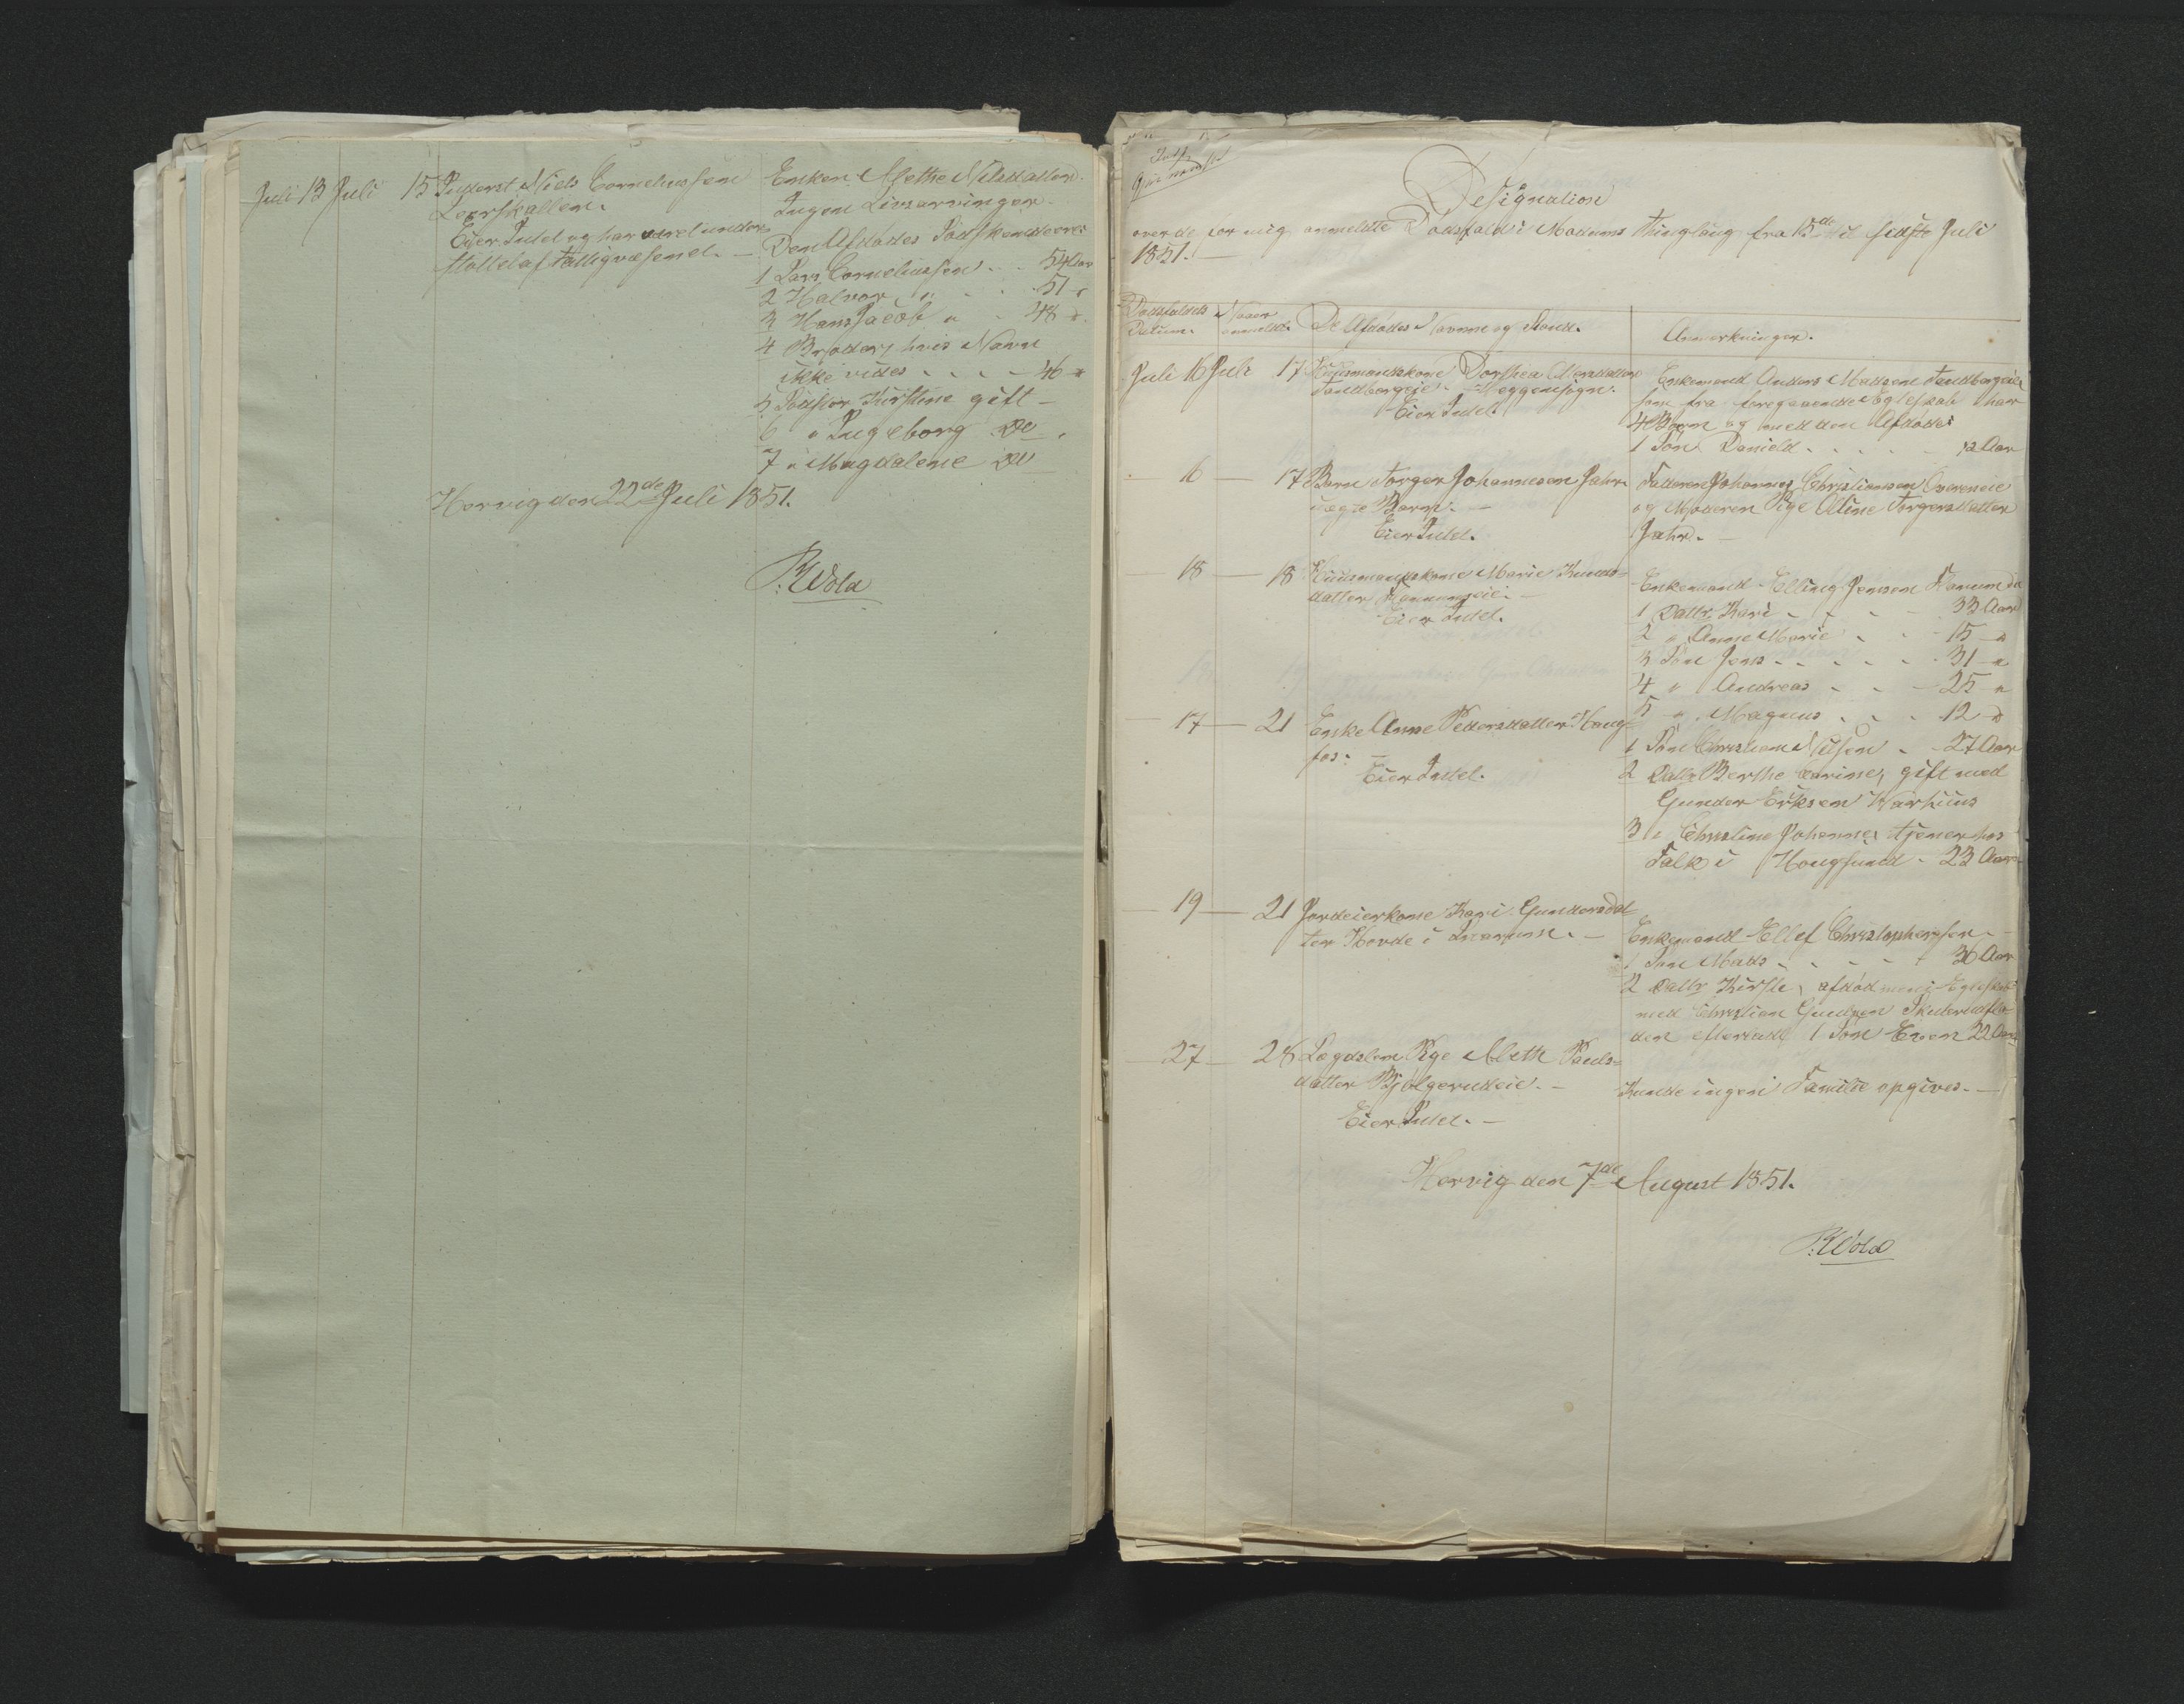 Juli 13 Juli 15 Inderst Niels Corneliussen
Leerskallen.
Eier Intet og har været under-
støttet af Fattigvæsenet. —
Enken Methe Nilsdatter.
Ingen Livsarvinger.
Den Afdødes Sødskendeere:
1 Lars Corneliussen . . 54 Aar
2 Halvor " . . 51 "
3 Hans Jacob " - 48 "
4 Broder, hvis Navn
ikke vides . . . . 46 "
5 Sødster Kirstine gift —
6 " Ingeborg Do
7 " Magdalene Do
Horvig den 22de Juli 1851.
P. Wold
Designation
over de for mig anmeldte Dødsfald i Modums Thinglaug fra 15de til sidste Juli
1851. —
Dødsfaldets
Datum.
Naar
anmeldt.
De Afdødes Navne og Stand.
Anmerkninger.
Juli 16 Juli 17 Huusmandskone Dorthea
Tandbergeie. Heggensogn.
Eier Intet.
Enkemand Anders Madsen Tandbergeie
som fra foregaaende Egteskab har
4 Børn og med den Afdøde:
1 Søn Danield . . . . . 12 Aar
— 16 — 17 Barn Torger Johannesen Jahr
uægte Barn. —
Eier Intet.
Faderen Johannes Christiansen Overeneie
og Moderen Pige Oline Torgersdatter
Jahr. —
— 18 — 18 Huusmandskone Marie Knuds-
datter
Eier Intet.
Enkemand Elling Jensen
1 Dattr. Kari . . . . 33 Aar
2 " Anne Marie . . 15 "
3 Søn Jens . . . . . 31 "
4 " Andreas . . . 25 "
5 " Magnus . . . 12 "
— 17 — 21 Enke Anne Pedersdatter Haug-
fos. —
Eier Intet.
1 Søn Christian Nilsen . 27 Aar
2 Dattr Berthe Carine, gift med
Gunder Eriksen Warhuus
3 " Christine Johanne, tjener hos
Falk i Hougsund . 23 Aar
— 19 — 21 Jordeierkone Kari Gundersdat-
ter Hovde i Snarum. —
Enkemand Ellef Christophersen —
1 Søn Mads . . . . . 36 Aar
2 Dattr Kirsti, afdød men i Egteskab
med Christian
den 1 Søn Even 22 Aar
— 27 — 28 Lægdslem Pige Meth Pauls-
datter Bjølgerudeie. —
Eier Intet. —
Kunde ingen Familie opgives. —
Horvig den 7de August 1851.
P. Wold